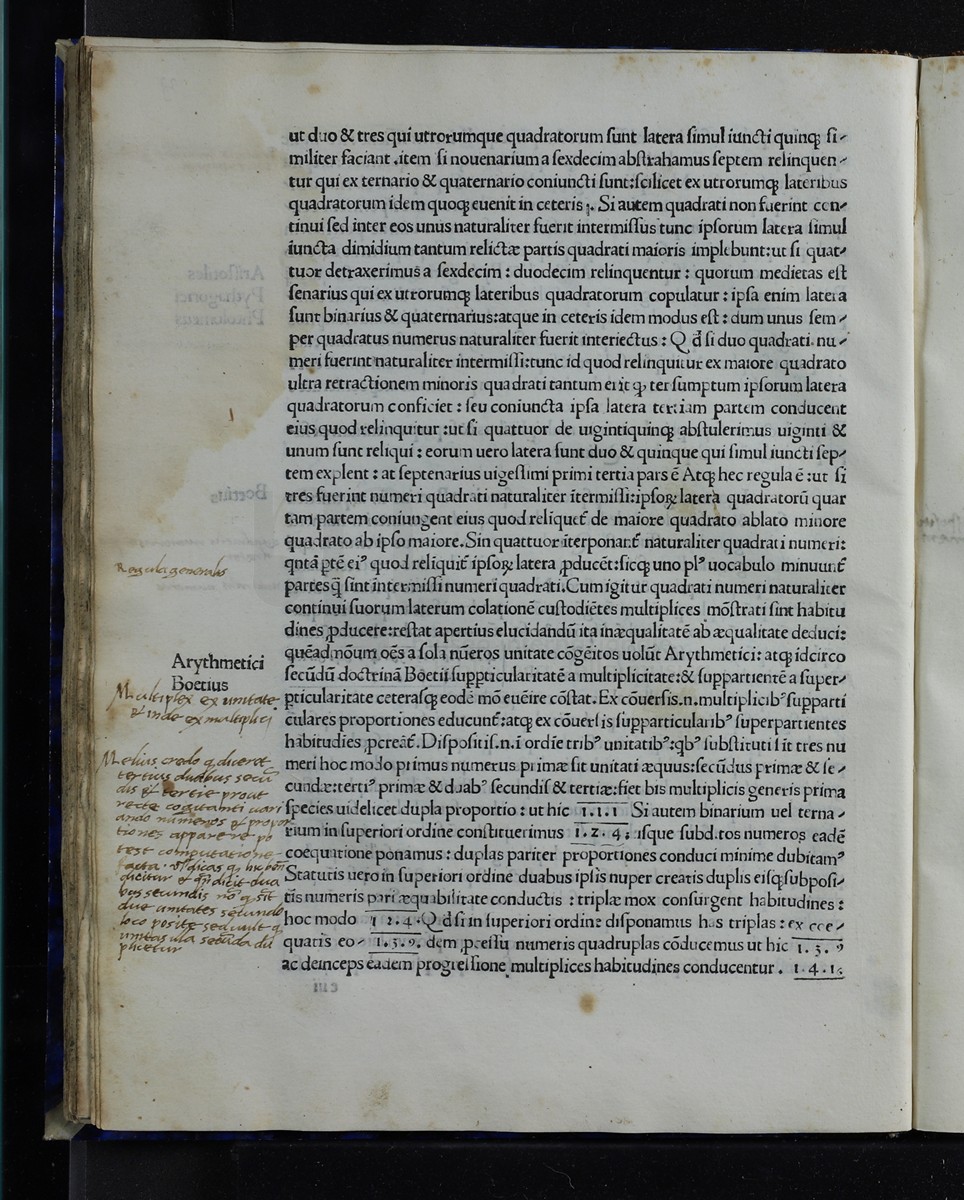 ut duo & tres qui utrorumque quadratorum ſunt latera ſimul iuncti quinqꝫ ſi-
militer faciant .item ſi nouenarium a ſexdecim abſtrahamus ſeptem relinquen-
tur qui ex ternario & quaternario coniuncti ſunt:ſcilicet ex utrorumqꝫ lateribus
quadratorum idem quoqꝫ euenit in ceteris ;. Si autem quadrati non fuerint con-
tinui ſed inter eos unus naturaliter fuerit intermiſſus tunc ipſorum latera ſimul
iuncta dimidium tantum relictæ partis quadrati maioris implebunt:ut ſi quat-
tuor detraxerimus a ſexdecim : duodecim relinquentur : quorum medietas eſt
ſenarius qui ex utrorumqꝫ lateribus quadratorum copulatur : ipſa enim latera
ſunt binarius & quaternarius:atque in ceteris idem modus eſt : dum unus ſem-
per quadratus numerus naturaliter fuerit interiectus : Q đ ſi duo quadrati nu-
meri fuerint naturaliter intermiſſi:tunc id quod relinquitur ex maiore quadrato
ultra retractionem minoris quadrati tantum erit ꝙ ter ſumptum ipſorum latera
quadratorum conficiet : ſeu coniuncta ipſa latera tertiam partem conducent
eius quod relinquitur :ut ſi quattuor de uigintiquinqꝫ abſtulerimus uiginti &
unum ſunt reliqui : eorum uero latera ſunt duo & quinque qui ſimul iuncti ſep-
tem explent : at ſeptenarius uigeſſimi primi tertia pars ē Atqꝫ hec regula ē :ut ſi
tres fuerint numeri quadrati naturaliter ītermiſſi:ipſoꝝ latera quadratorū quar
tam partem coniungent eius quod reliquet̄ de maiore quadrato ablato minore
quadrato ab ipſo maiore. Sin quattuor īterponant̄ naturaliter quadrati numeri:
qntā ꝑtē eiꝰ quod reliquit̄ ipſoꝝ latera ꝓducēt:ſicqꝫ uno plꝰ uocabulo minuunt̄
partes q̄ ſint intermiſſi numeri quadrati. Cum igitur quadrati numeri naturaliter
continui ſuorum laterum colationē cuſtodiētes multiplices mōſtrati ſint habitu
dines ꝓducere:reſtat apertius elucidandū ita inæqualitatē ab æqualitate deduci:
quēadmōum oēs a ſola nūeros unitate cōgēitos uolūt Arythmetici: atqꝫ idcirco
Arythmetici
Boetius
ſecūdū doctrinā Boetii ſupꝑticularitatē a multiplicitate:& ſuppartientē a ſuper-
ꝑticularitate ceteraſqꝫ eodē mō euēire cōſtat. Ex cōuerſis.n.multiplicibꝰ ſupparti
culares proportiones educunt̄:atqꝫ ex cōuerſis ſupparticularibꝰ ſuperpartientes
habitudies ꝓcreāt̄. Diſpoſitiſ.n.i ordīe tribꝰ unitatibꝰ:qbꝰ ſubſtituti ſit tres nu
meri hoc modo primus numerus primæ ſit unitati æquus:ſecūdus primæ & ſe-
cundæ:tertiꝰ primæ & duabꝰ ſecundiſ & tertiæ:fiet bis multiplicis generis prima
ſpecies uidelicet dupla proportio : ut hic 1.1.1 Si autem binarium uel terna-
rium in ſuperiori ordine conſtituerimus 1.2.4 ; iſque ſubditos numeros eadē
coequatione ponamus : duplas pariter proportiones conduci minime dubitamꝰ
Statutis uero in ſuperiori ordine duabus ipſis nuper creatis duplis eiſqꝫ ſubpoſi-
tis numeris pari æquabilitate conductis : triplæ mox conſurgent habitudines :
hoc modo 1 2.4. Q đ ſi in ſuperiori ordine diſponamus has triplas : ex coe-
quatis eo- 1.3.9. dem ꝓceſſu numeris quadruplas cōducemus ut hic 1.3.9
ac deinceps eadem progreſſione multiplices habitudines conducentur . 1.4.16
Regula generalis
Multiplex ex unitate
& inde ex multiplici
Melius credo q diceret
tertius duabus secū
dis & tertie prout
recte cogitanti uari
ando numeros & propor
tiones apparere po
test computatione